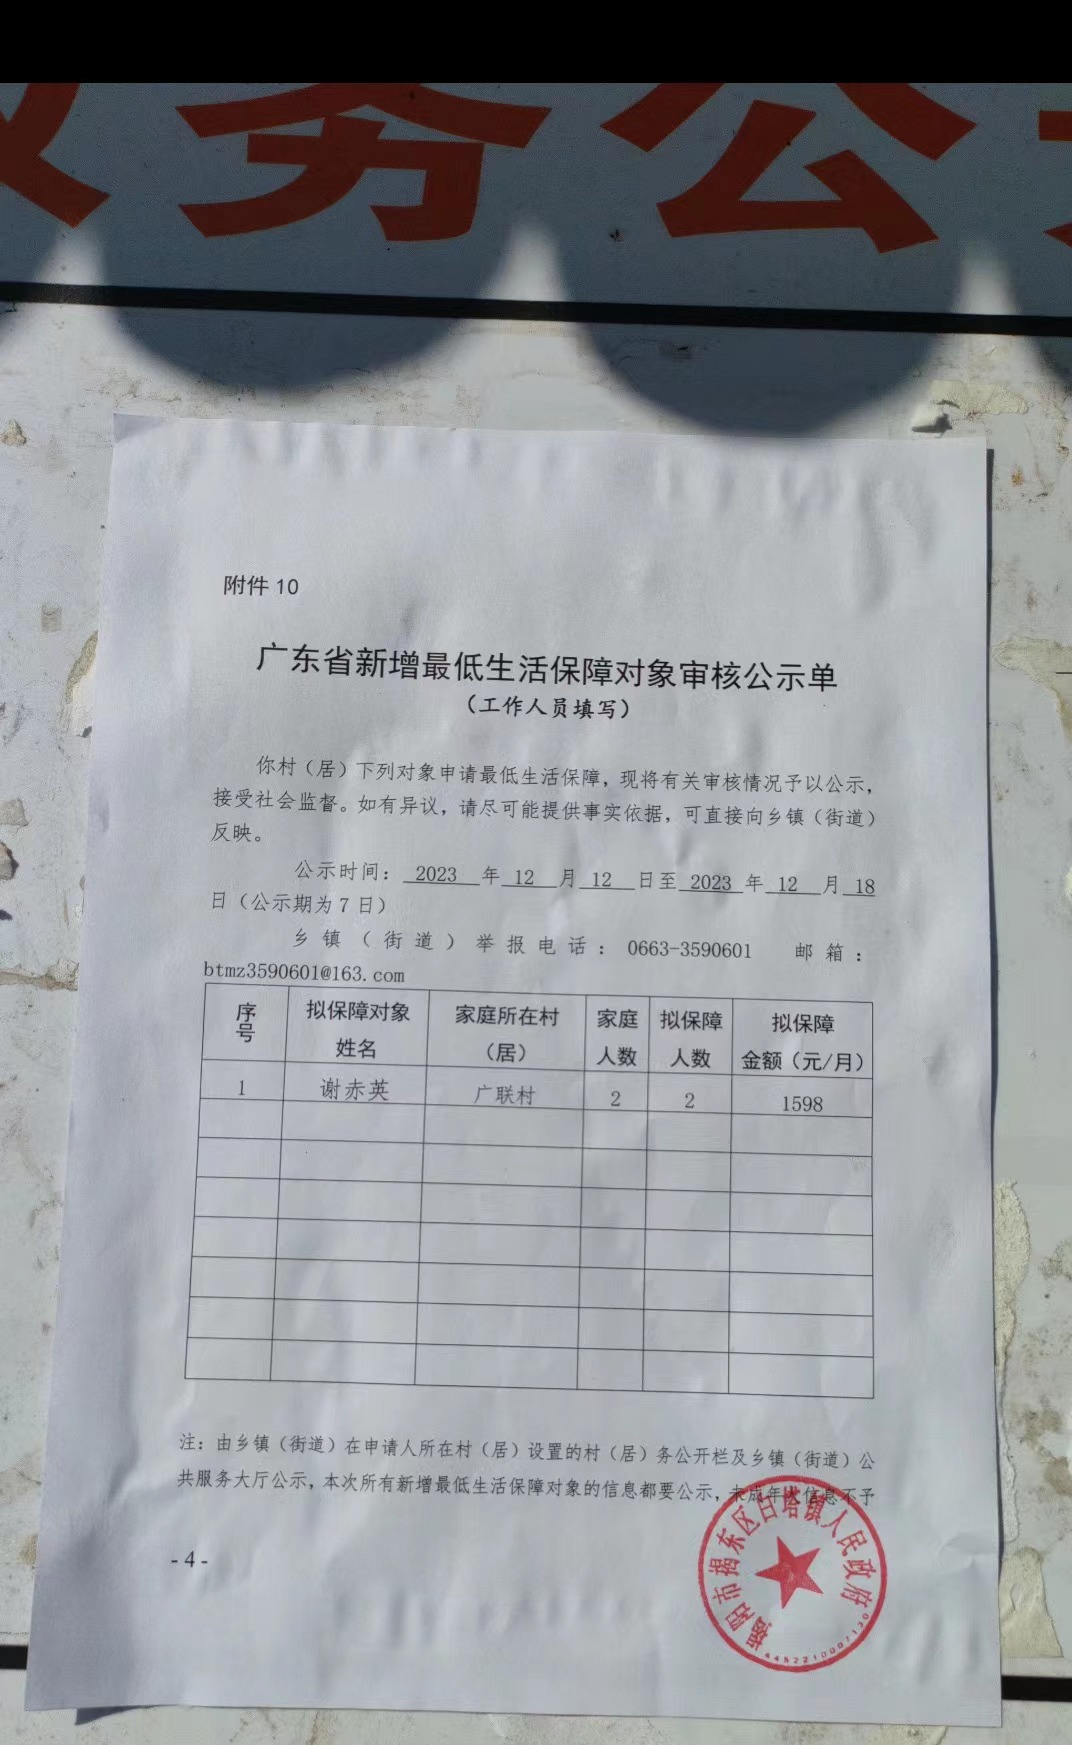 务公
附件 10
广东省新增最低生活保障对象审核公示单
（工作人员填写）
你村（居）下列对象申请最低生活保障，现将有关审核情况予以公示，
接受社会监督。如有异议，请尽可能提供事实依据，可直接向乡镇（街道）
反映。
公示时间：2023 年 12 月 12 日至 2023 年 12 月 18
日（公示期为 7 日）
乡镇（街道）举报电话：0663-3590601 邮箱：
btmz3590601@163.com
序号 拟保障对象姓名 家庭所在村（居） 家庭人数 拟保障人数 拟保障金额（元/月）
1 谢赤英 广联村 2 2 1598
注：由乡镇（街道）在申请人所在村（居）设置的村（居）务公开栏及乡镇（街道）公
共服务大厅公示，本次所有新增最低生活保障对象的信息都要公示，未成年人信息不予
- 4 -
揭阳市揭东区白塔镇人民政府